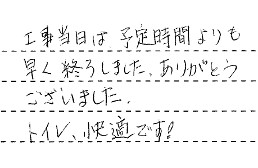 工事当日は予定時間よりも
早く終ろしました、ありがとう
ございました。
トイレ、快適です!